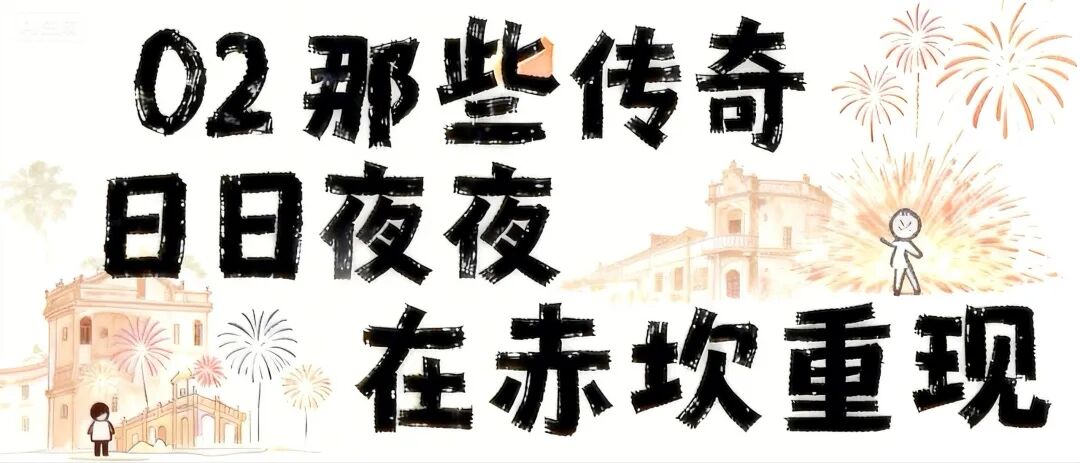 02那些传奇
日日夜夜
在赤坎重现